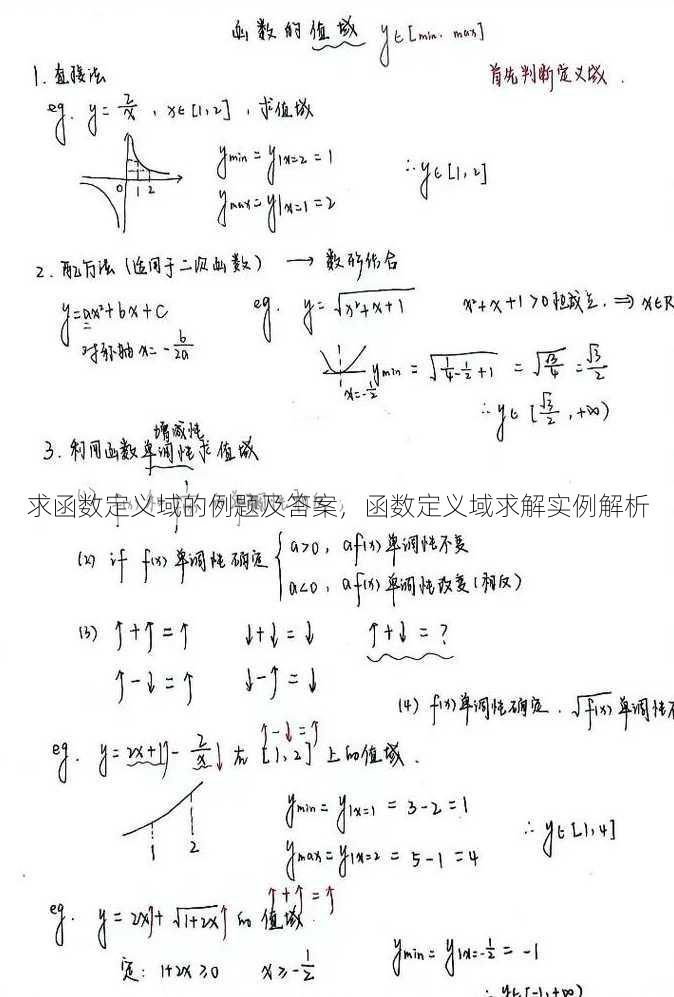 函数的值域 y∈[min, max]
首先判断定义域.
1. 直接法
eg. y=2/x , x∈[1,2] , 求值域
0 1 2
ymin=y|x=2=1
ymax=y|x=1=2
∴y∈[1,2]
2. 配方法 (适用于二次函数) → 数形结合
y=ax²+bx+c
对称轴 x=-b/2a
eg. y=√x²+x+1 x²+x+1>0恒成立, ⇒ x∈R
x=-1/2
ymin=√1/4-1/2+1 =√3/4 =√3/2
∴y∈[√3/2,+∞)
增减性
3. 利用函数单调性求值域
求函数定义域的例题及答案，函数定义域求解实例解析
(2) if f(x)单调性确定 { a>0, af(x)单调性不变
a<0, af(x)单调性改变(相反)
(3) ↑+↑=↑ ↓+↓=↓ ↑+↓=?
↑-↓=↑ ↓-↑=↓
(4) f(x)单调性确定, √f(x)单调性不
↑-↓=↑
eg. y=2x+1↑-2/x↓ 在[1,2]上的值域.
1 2
ymin=y|x=1=3-2=1
ymax=y|x=2=5-1=4
∴y∈[1,4]
↑+↑=↑
eg. y=2x↑+√1+2x↑ 的值域.
定: 1+2x≥0 x≥-1/2
ymin=y|x=-1/2=-1
∴y∈[-1,+∞)